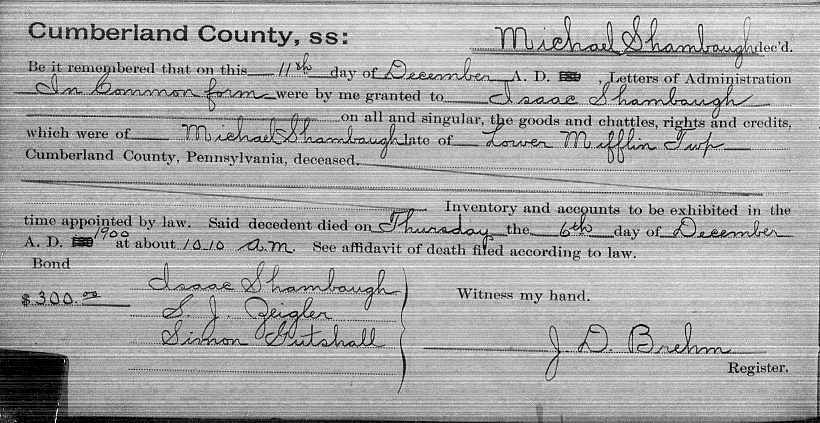 Cumberland County, ss: Michael Shambaugh dec'd.
Be it remembered that on this 11th day of December A. D. , Letters of Administration
In Common form were by me granted to Isaac Shambaugh
on all and singular, the goods and chattles, rights and credits,
which were of Michael Shambaugh late of Lower Mifflin Twp
Cumberland County, Pennsylvania, deceased.
Inventory and accounts to be exhibited in the
time appointed by law. Said decedent died on Thursday the 6th day of December
A. D. 1900 at about 10 10 a.m. See affidavit of death filed according to law.
Bond
Isaac Shambaugh
$300.00
S. J. Zeigler
Witness my hand.
Simon Gutshall
J. D. Brehm
Register.